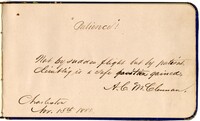 "Patience"!
Not by sudden flight but by patient
climbing is a safe position gained.
A. C. McClennan
Charleston
Nov. 15th